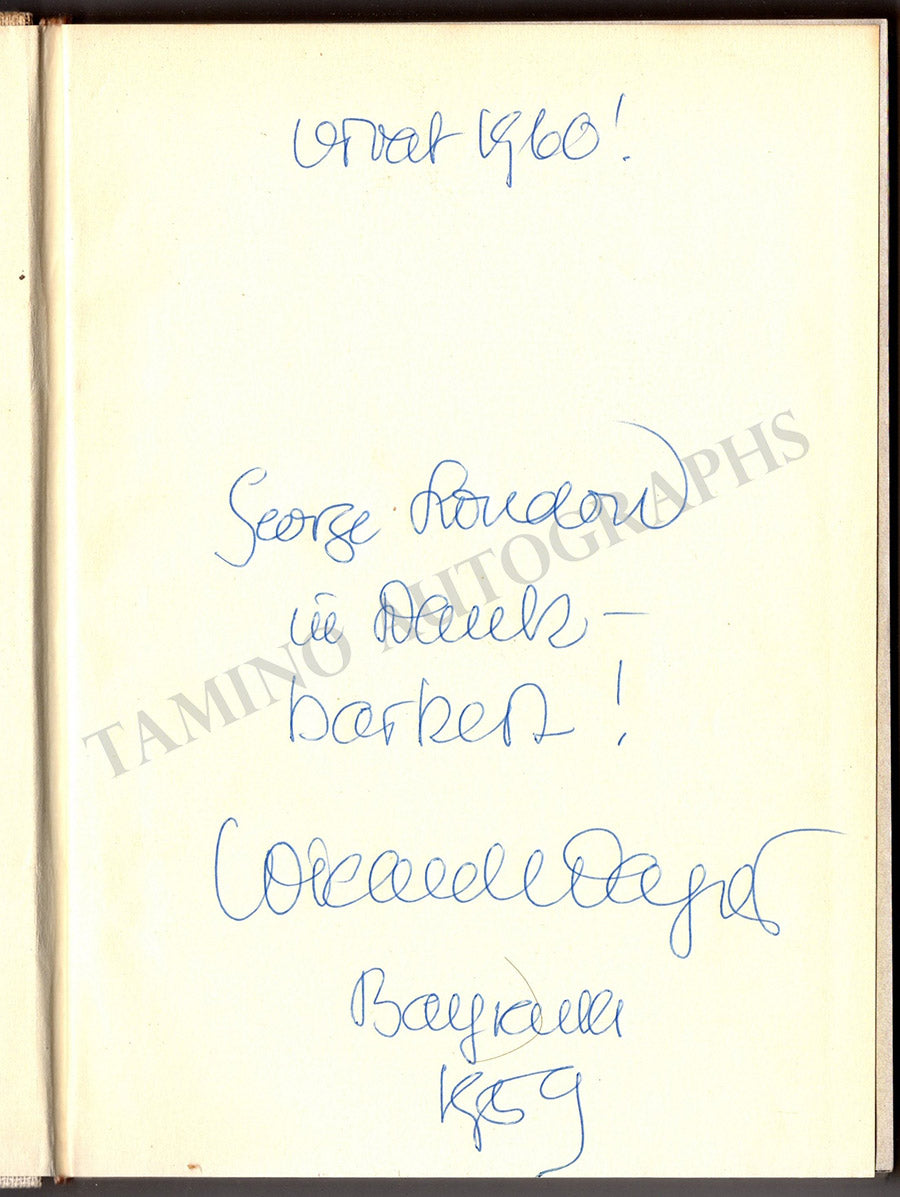 vivat 1960!
George London
in Dank-
barkeit!
Wieland Wagner
Bayreuth
1959
TAMINO AUTOGRAPHS